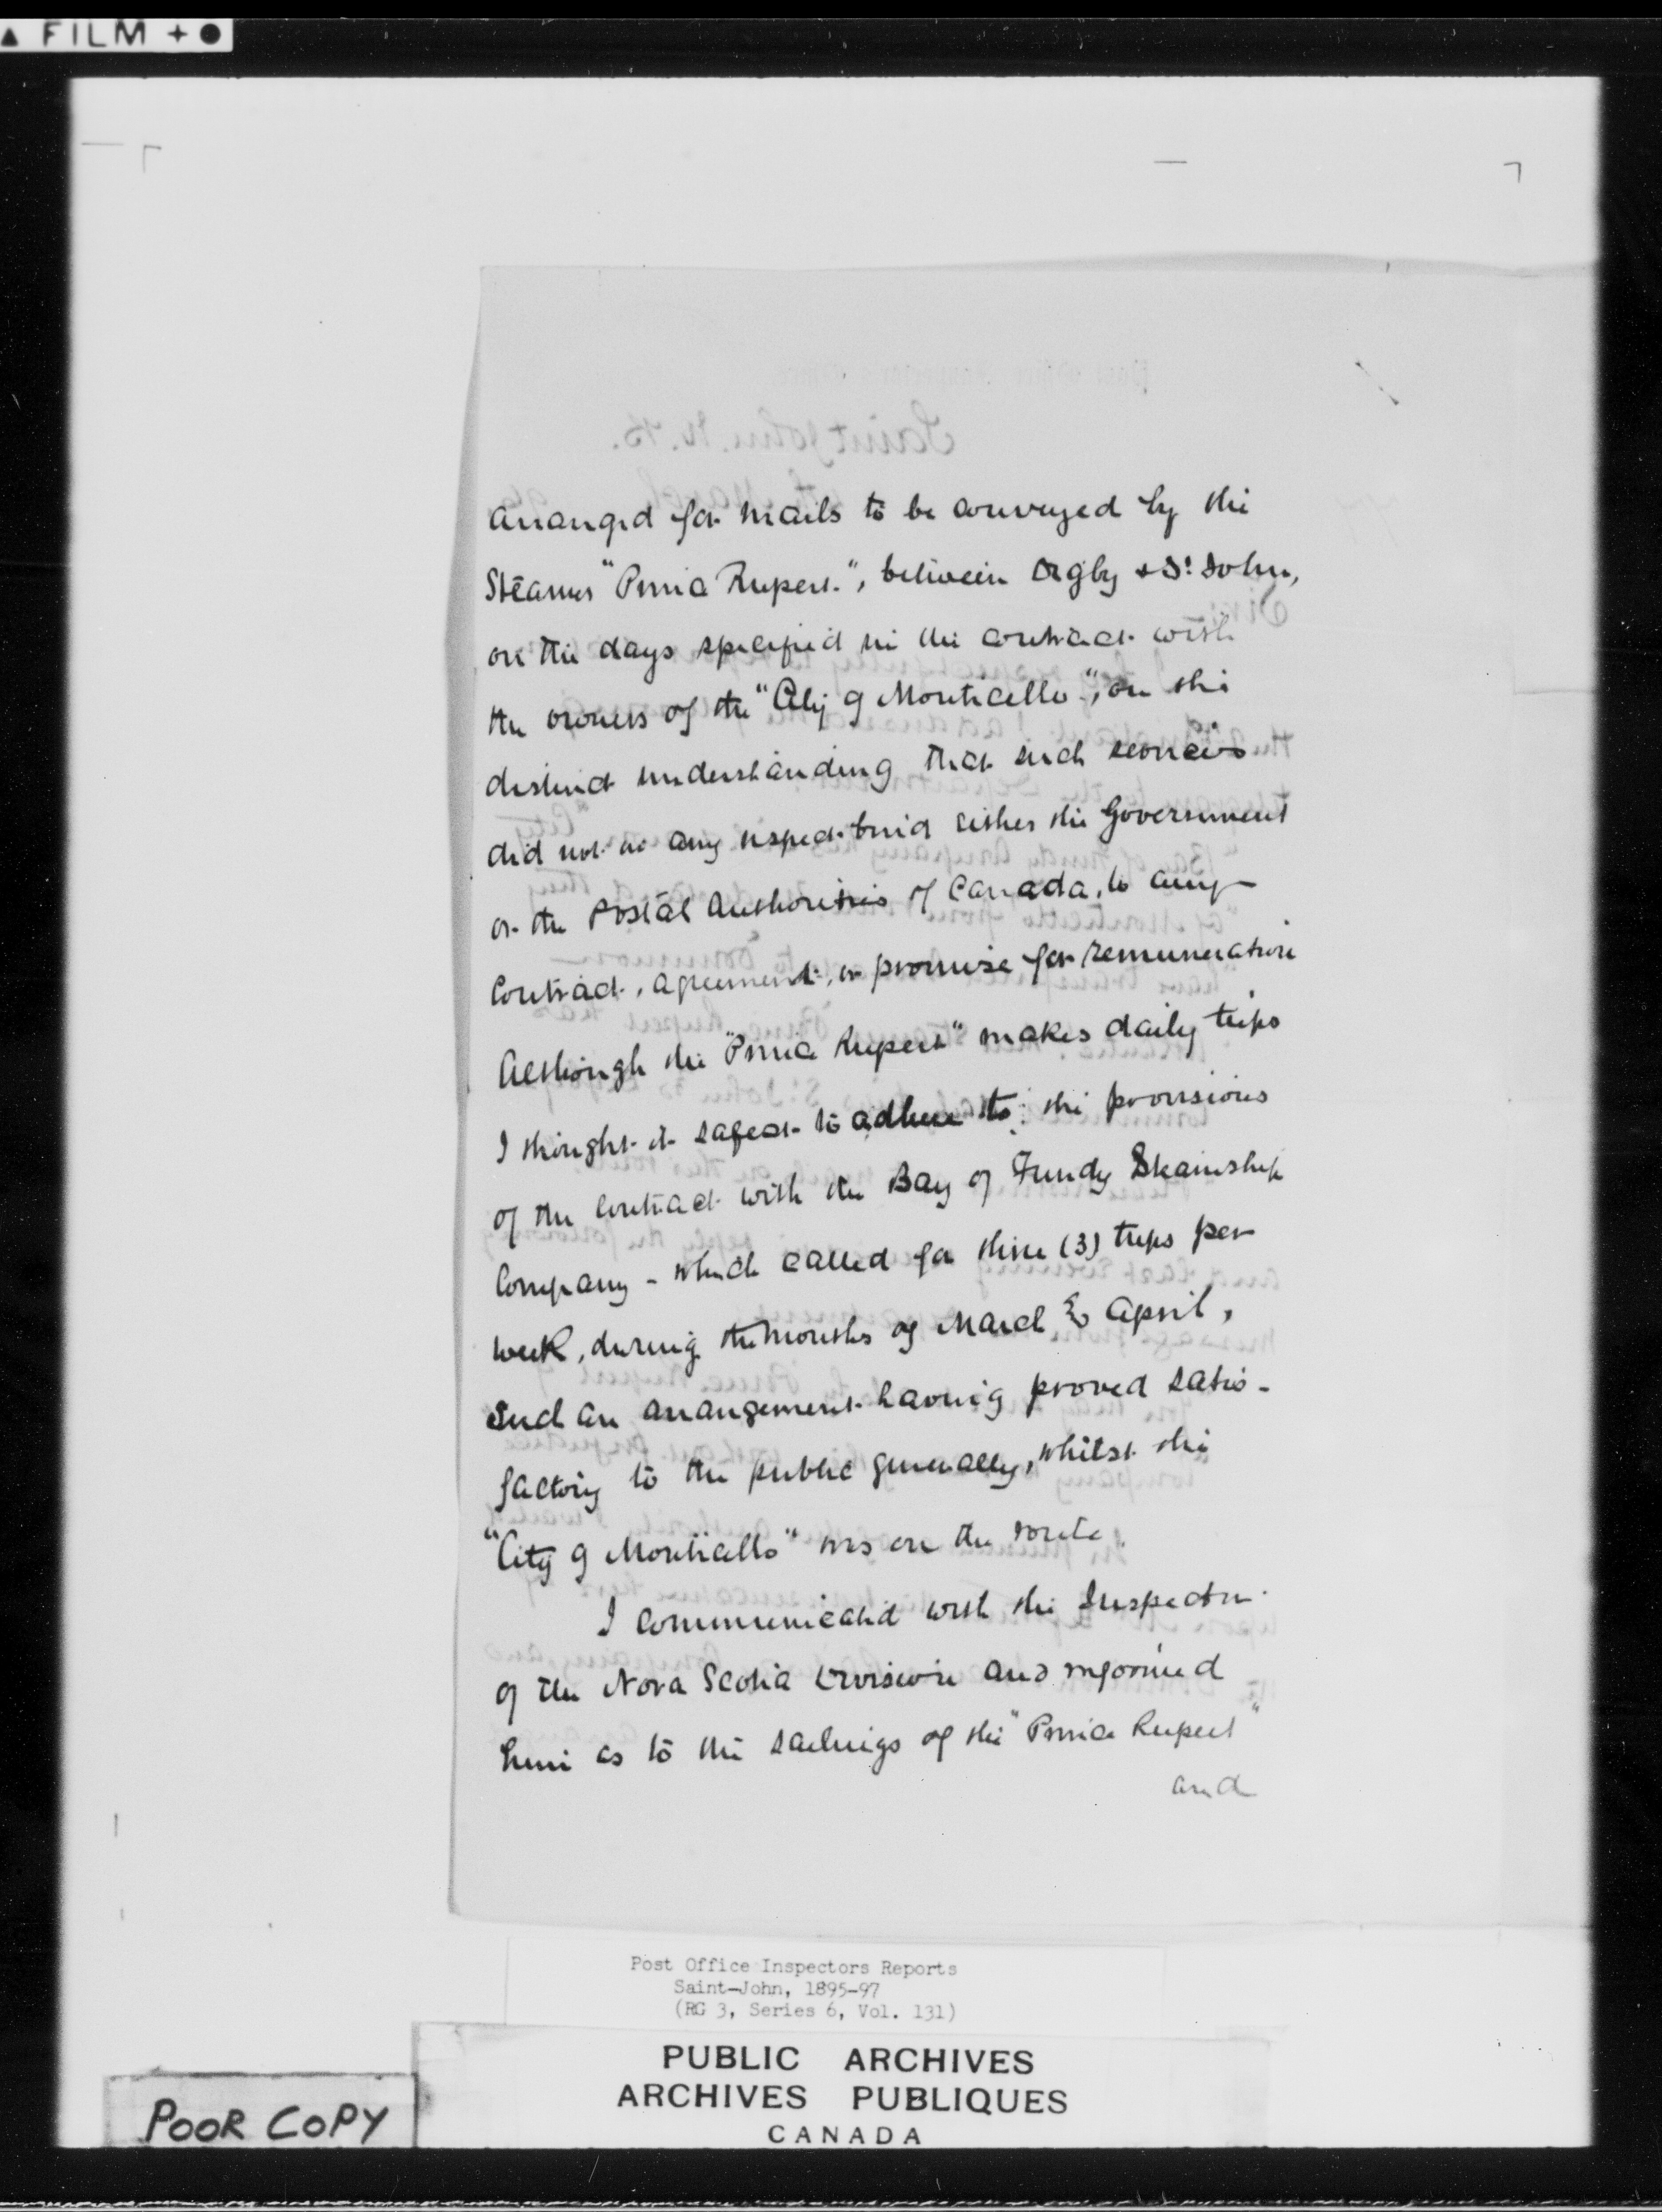 FILM
arranged for mails to be conveyed by the
Steamer "Prince Rupert", between Digby & St. John,
on the days specified in the contract with
the owners of the "City of Monticello", on the
distinct understanding that such services
did not in any respect bind either the Government
or the Postal Authorities of Canada, to any
Contract, agreement, or promise for remuneration
Although the "Prince Rupert" makes daily trips
I thought it safest to adhere to the provisions
of the Contract with the Bay of Fundy Steamship
Company - which called for three (3) trips per
week, during the months of March & April,
Such an arrangement having proved satis-
factory to the public generally, whilst the
"City of Monticello" was on the route.
I communicated with the Inspector
of the Nova Scotia Division and informed
him as to the sailings of the "Prince Rupert"
and
Post Office Inspectors Reports
Saint-John, 1895-97
(RG 3, Series 6, Vol. 131)
PUBLIC ARCHIVES
ARCHIVES PUBLIQUES
CANADA
POOR COPY